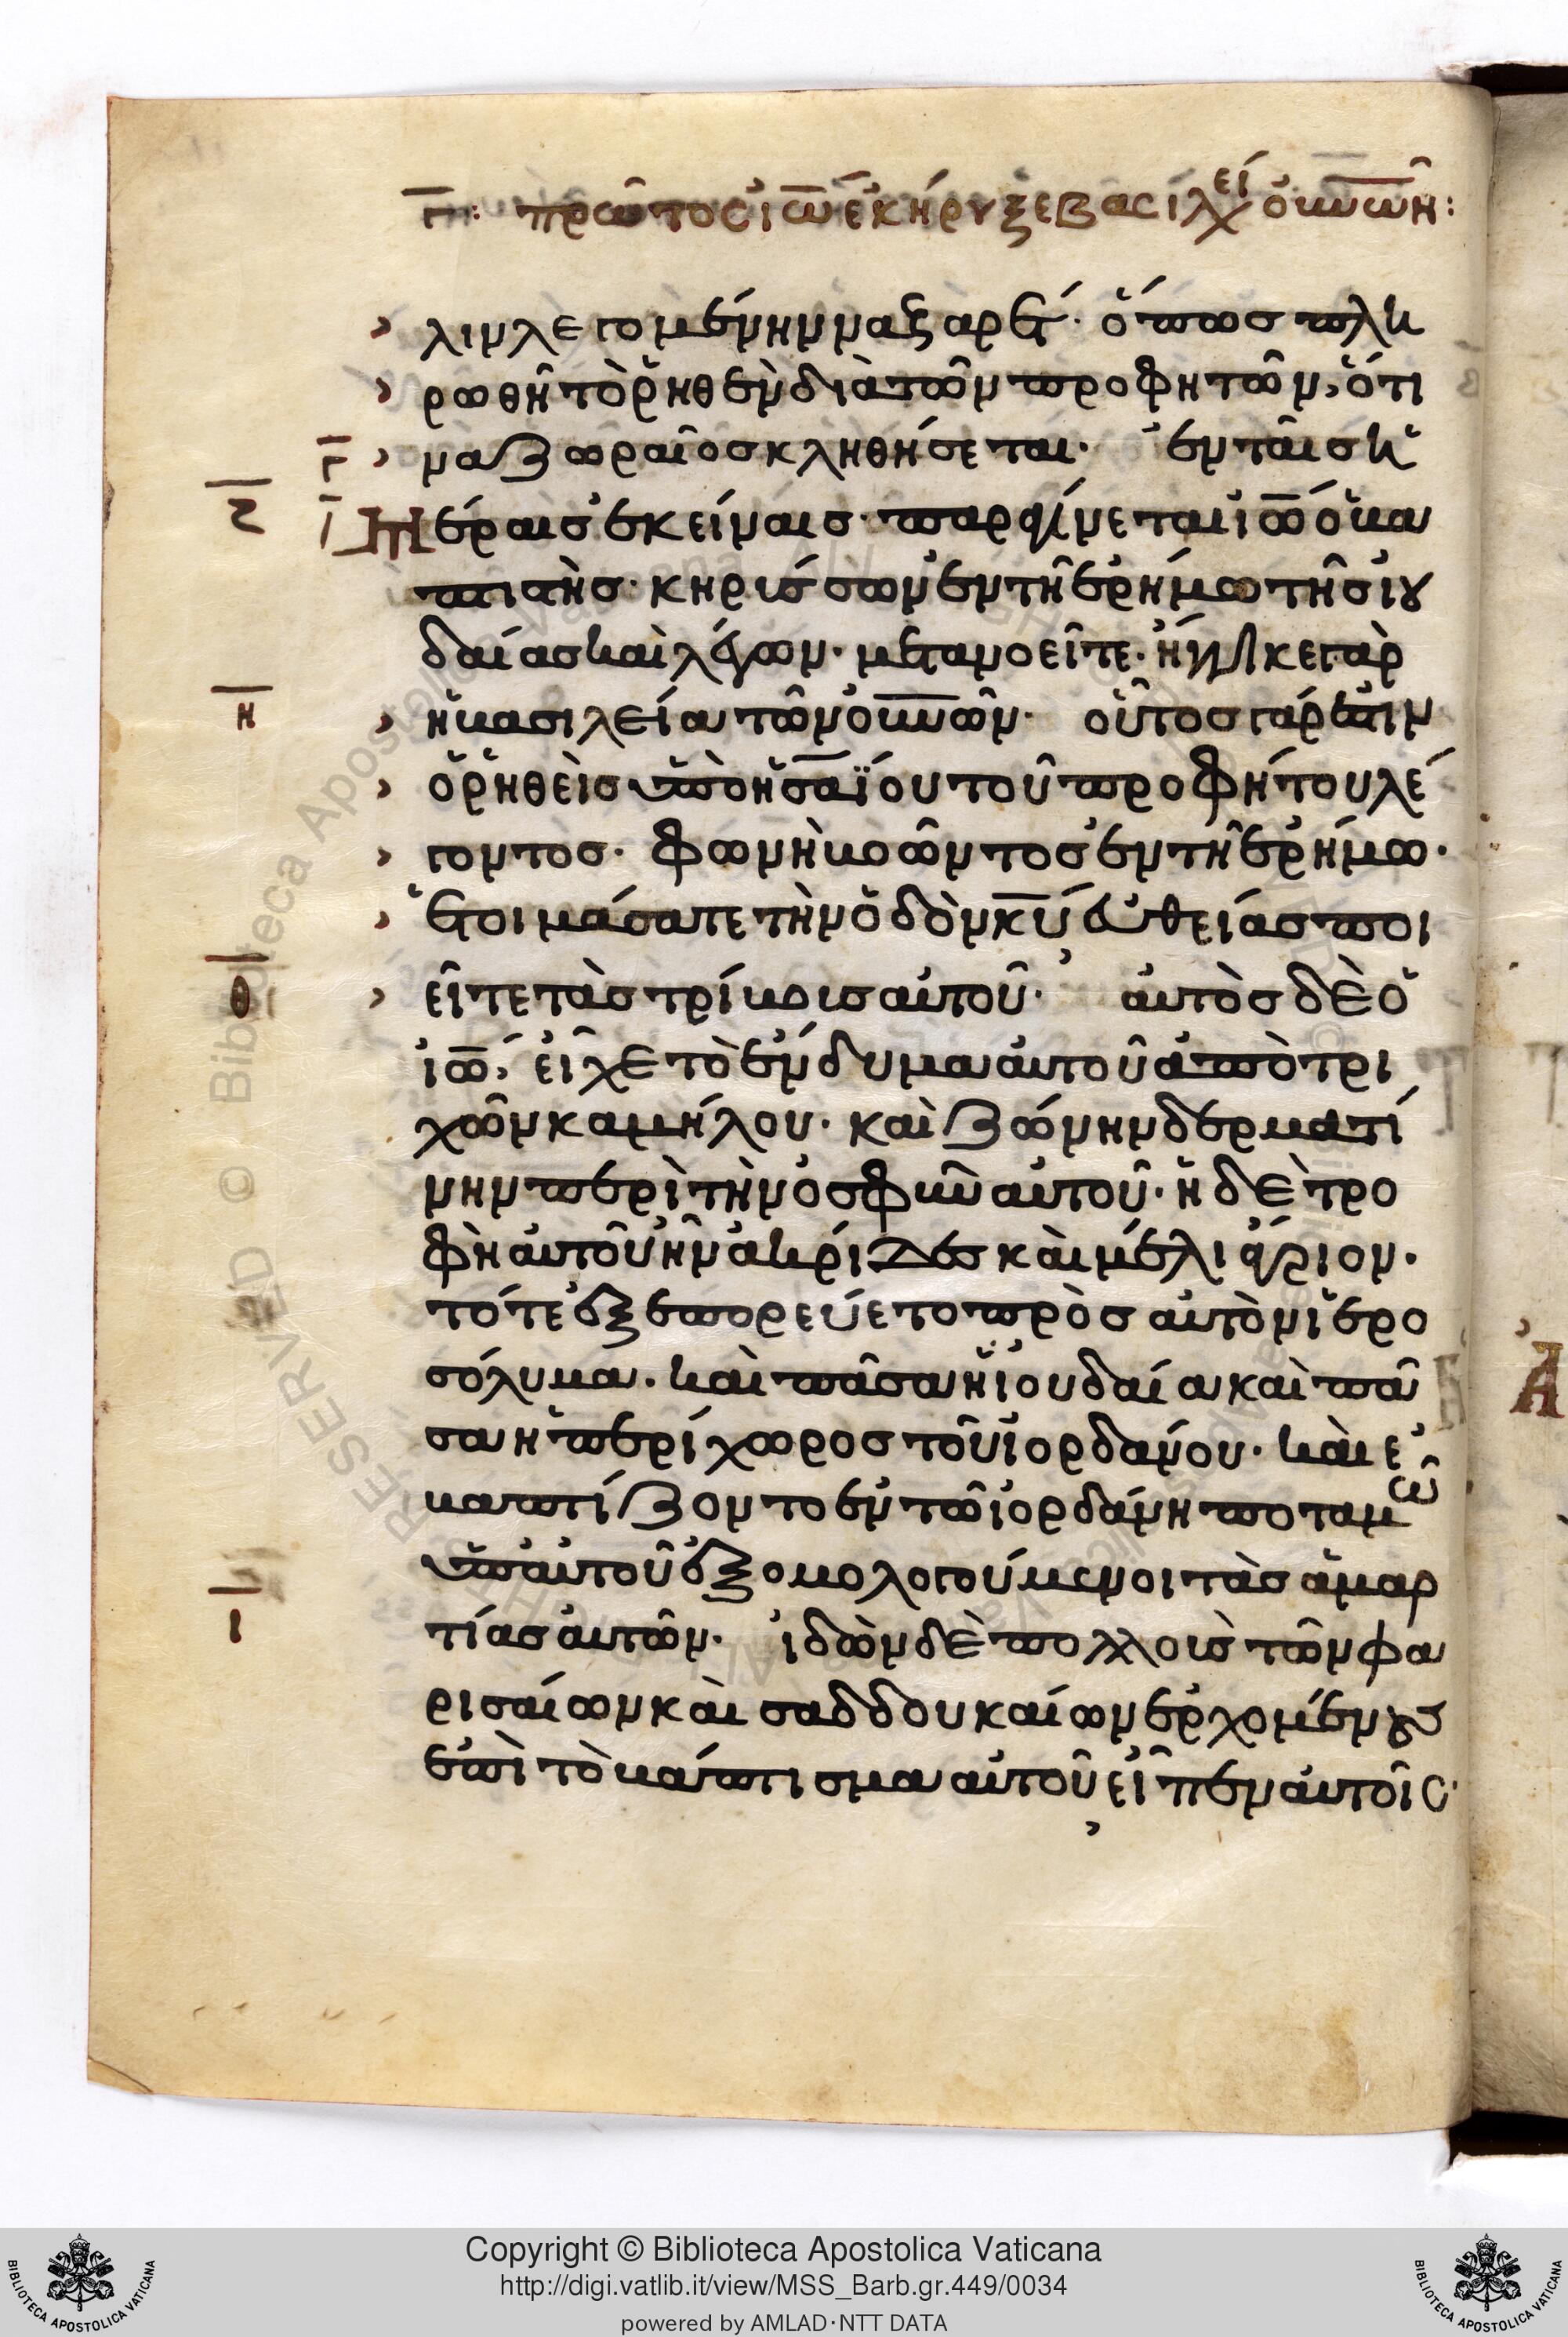 γ: πρῶτος ἰω̅ ἐκήρυξε βασιλείχ ὀυνωῆ:
λιν λεγομένην ναζαρέτ· ὅπως πλη
ρωθῆ τὸ ῥηθὲν διὰ τῶν προφητῶν, ὅτι
γ ναζωραῖος κληθήσεται· ἐν ταῖς ἡ
ζ Μέραις ἐκείναις· παραγίνεται ἰω̅ ὁ βα
πτιστὴς· κηρύσσων ἐν τῆ ἐρήμω τῆς ἰου
δαίας καὶ λέγων· μετανοεῖτε· ἤγγικε γὰρ
η ἡ βασιλεία τῶν ουνῶν· οὗτος γάρ ἐστιν
ὁ ῥηθεὶς ὑπὸ ἡσαΐου τοῦ προφήτου λέ
γοντος· φωνὴ βοῶντος ἐν τῆ ἐρήμω·
ἑτοιμάσατε τὴν ὁδὸν κυ̅ εὐθείας ποι
θ εῖτε τὰς τρίβους αὐτοῦ· αὐτὸς δὲ ὁ
ἰω̅, εἶχε τὸ ἔνδυμα αὐτοῦ ἀπὸ τρι
χῶν καμήλου· καὶ ζώνην δερματί
νην περὶ τὴν ὀσφὺν αὐτοῦ· ἡ δὲ τρο
φὴ αὐτοῦ ἦν ἀκρίδες καὶ μέλι ἄγριον·
τότε ἐξεπορεύετο πρὸς αὐτὸν ἱερο
σόλυμα· καὶ πᾶσα ἡ ἰουδαία καὶ πᾶ
σα ἡ περίχωρος τοῦ ἰορδάνου· καὶ ἐ
βαπτίζοντο ἐν τῶ ἰορδάνη ποταμῶ
ὑπ αὐτοῦ ἐξομολογούμενοι τὰς ἁμαρ
ι τίας αὐτῶν· ἰδὼν δὲ πολλοὺς τῶν φα
ρισαίων καὶ σαδδουκαίων ἐρχομένους
ἐπὶ τὸ βάπτισμα αὐτοῦ, εἶπεν αὐτοῖς·
Copyright © Biblioteca Apostolica Vaticana
http://digi.vatlib.it/view/MSS_Barb.gr.449/0034
powered by AMLAD·NTT DATA
BIBLIOTECA APOSTOLICA VATICANA
BIBLIOTECA APOSTOLICA VATICANA